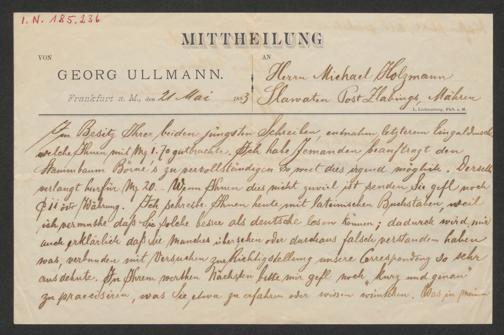 I. N. 185.236
MITTHEILUNG
VON
AN
GEORG ULLMANN.
Herrn Michael Holzmann
Frankfurt a. M., den 21 Mai 1883
Slawaten Post Zlabings, Mähren
Im Besitz Ihrer beiden jüngsten Schreiben, entnahm letzterem
welche Ihnen mit Mk 1.70 gutbrachte. Ich habe Jemanden beauftragt den
Stammbaum Börne's zu vervollständigen so weit dies irgend möglich. Derselbe
verlangt hierfür Mk 20.- Wenn Ihnen dies nicht zuviel ist senden Sie gefl noch
österr Währung. Ich schreibe Ihnen heute mit lateinischen Buchstaben, weil
ich vermuthe daß Sie solche besser als deutsche lesen können; dadurch wird mir
auch erklärlich daß Sie Manches übersehen oder durchaus falsch verstanden haben
was, verbunden mit Versuchen zur Richtigstellung unsere Correspondenz so sehr
ausdehnte. In Ihrem werthen Nächsten bitte mir gefl noch „kurz und genau"
zu praecisiren, was Sie etwa zu erfahren oder wissen wünschen. Was in meinen